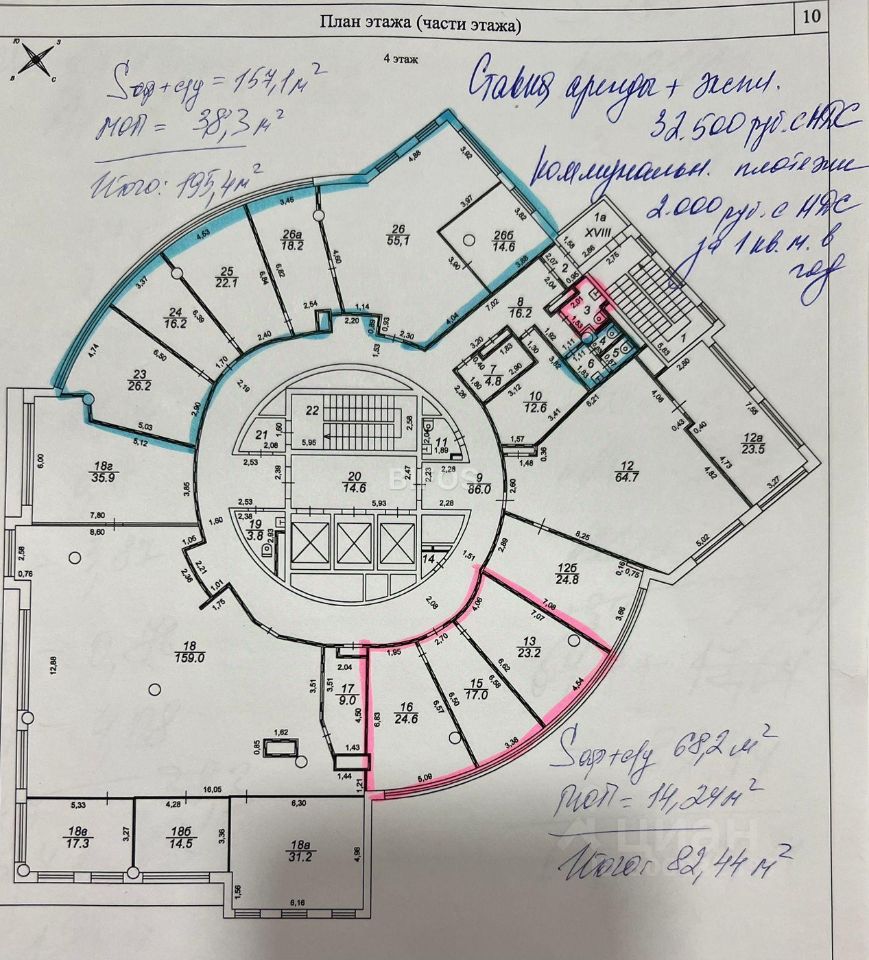 План этажа (части этажа)
10
4 этаж
Ю З
В С
Sоф+с/у = 157,1 м²
МОП = 38,3 м²
Итого: 195,4 м²
Ставка аренды + экспл.
32.500 руб. с НДС
коммунальн. платежи
2.000 руб. с НДС
за 1 кв. м. в
год
1а
XVIII
1
2
3
4
5
6
7
4.8
8
16.2
9
86.0
10
12.6
11
12
64.7
12а
23.5
12б
24.8
13
23.2
14
15
17.0
16
24.6
17
9.0
18
159.0
18г
35.9
18в
17.3
18б
14.5
18в
31.2
19
3.8
20
14.6
21
22
23
26.2
24
16.2
25
22.1
26а
18.2
26
55,1
26б
14.6
4,88
3,92
3,82
3,97
3,90
3,88
7,02
4,04
3,45
4,53
3,37
4,74
6,50
6,39
6,94
6,82
4,59
2,54
2,20
1,14
0,89
0,93
1,53
2,30
2,40
1,70
2,19
2,90
5,03
5,12
6,00
7,80
8,60
3,85
1,60
1,05
2,21
2,36
1,01
1,75
2,58
0,76
12,88
1,62
0,85
16,05
5,33
4,28
6,30
3,27
3,36
4,98
1,56
6,16
3,51
3,51
2,04
4,50
1,43
1,44
1,21
6,83
5,09
1,95
6,57
6,50
2,70
6,58
6,62
3,38
4,54
4,06
7,07
7,08
2,08
1,51
2,89
8,25
0,16
0,75
3,66
5,02
3,27
4,82
4,73
7,55
4,08
0,43
0,40
2,60
5,83
6,21
3,41
1,57
1,48
0,36
2,60
3,12
2,90
1,83
3,20
1,30
2,26
1,92
3,82
2,07
2,04
0,95
1,58
2,86
2,76
2,01
1,53
1,11
1,11
1,83
5,95
2,58
1,60
2,08
2,53
2,39
2,53
2,38
2,93
5,93
2,47
2,23
2,28
2,28
1,89
2,04
BFOS
ЦИАН
Sоф+с/у 68,2 м²
МОП = 14,24 м²
Итого: 82,44 м²